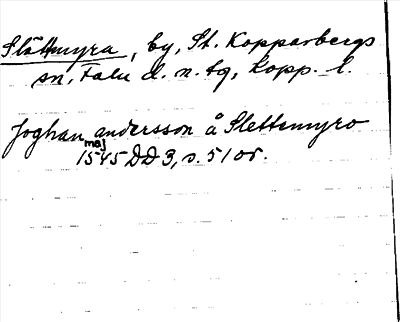 Slättmyra, by, St. Kopparbergs
sn, Falu d. n. tg, Kopp. l.
Joghan andersson å Slettemyro
maj
1545 DD 3, s. 51 or.